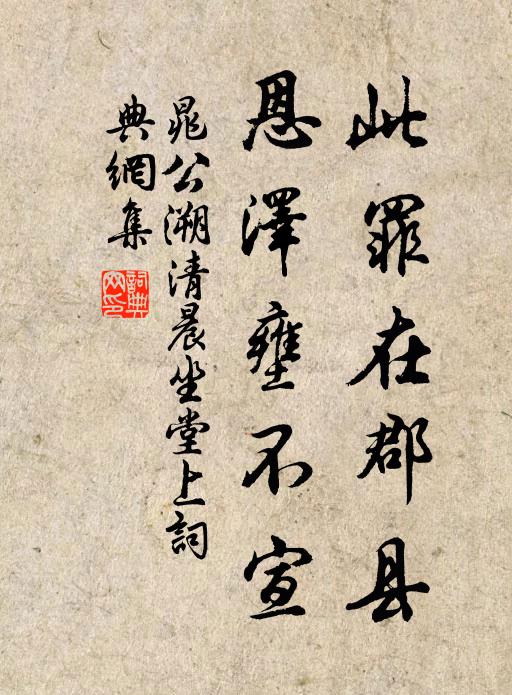 此罪在郡县
恩澤壅不宣
晁公溯清晨坐堂上詞
典網集
詞典网印